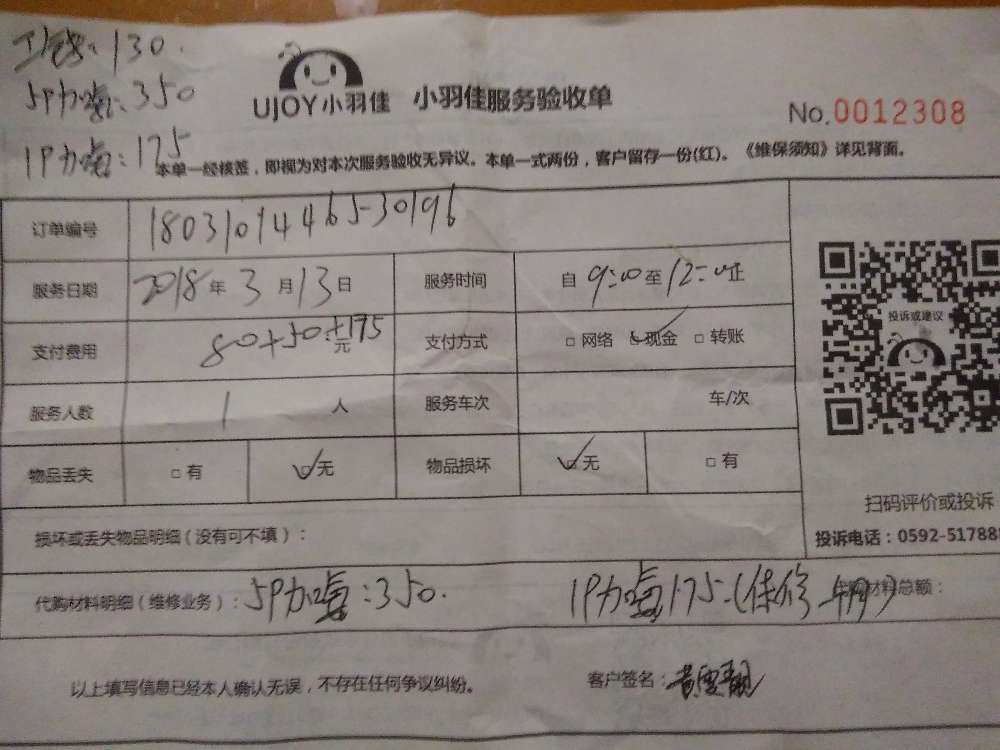 工钱：130.
5P加氟：350
1P加氟：175
UJOY小羽佳 小羽佳服务验收单
No.0012308
本单一经核签，即视为对本次服务验收无异议。本单一式两份，客户留存一份(红)。《维保须知》详见背面。
订单编号 180310144465-30196
服务日期 2018年3月13日 服务时间 自9:00至12:00止
投诉或建议
支付费用 80+50+175元 支付方式 □网络 ☑现金 □转账
服务人数 1人 服务车次 车/次
物品丢失 □有 ☑无 物品损坏 ☑无 □有
扫码评价或投诉
损坏或丢失物品明细（没有可不填）：
投诉电话：0592-51788
代购材料明细（维修业务）：5P加氟：350. 1P加氟175.(保修 代购材料总额：
以上填写信息已经本人确认无误，不存在任何争议纠纷。 客户签名：